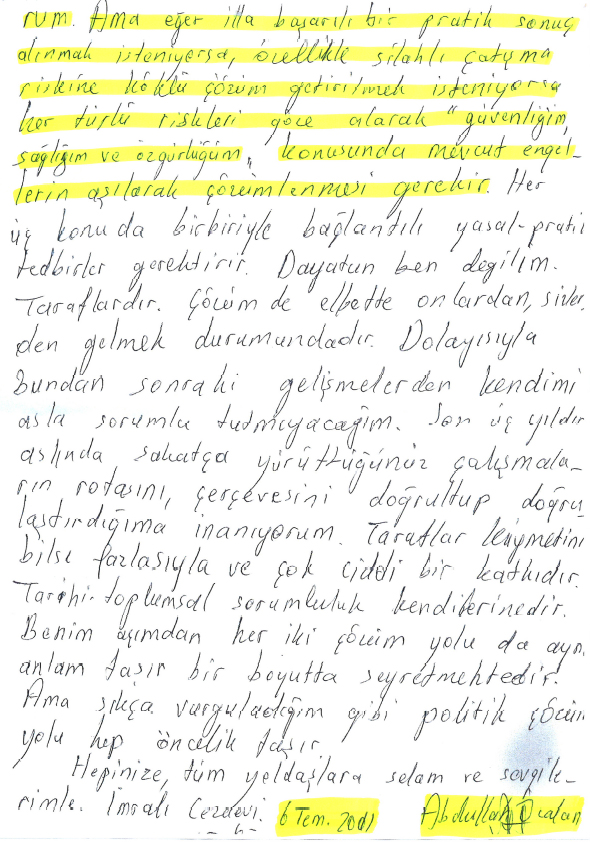 rum. Ama eğer illa başarılı bir pratik sonuç
alınmak isteniyorsa, özellikle silahlı çatışma
riskine köklü çözüm getirilmek isteniyorsa
her türlü riskleri göze alarak "güvenliğim,
sağlığım ve özgürlüğüm" konusunda mevcut engel-
lerin aşılarak çözümlenmesi gerekir. Her
üç konuda birbiriyle bağlantılı yasal-pratik
tedbirler gerektirir. Dayatan ben değilim.
Taraflardır. Çözüm de elbette onlardan, sizler-
den gelmek durumundadır. Dolayısıyla
bundan sonraki gelişmelerden kendimi
asla sorumlu tutmayacağım. Son üç yıldır
aslında yürüttüğünüz çalışmala-
rın rotasını, çerçevesini doğrultup doğru
laştırdığıma inanıyorum. Taraflar kıymetini
bilse fazlasıyla ve çok ciddi bir katkıdır.
Tarihi-toplumsal sorumluluk kendilerinedir.
Benim açımdan her iki çözüm yolu da aynı
anlam taşır bir boyutta seyretmektedir.
Ama sıkça vurguladığım gibi politik çözüm
yolu hep öncelik taşır.
Hepinize, tüm yoldaşlara selam ve sevgile-
rimle. İmralı Cezaevi. 6 Tem. 2011 Abdullah Öcalan